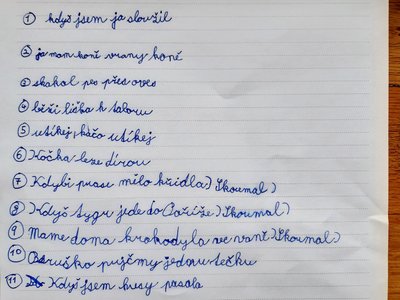 ① když jsem ja sloužil
② ja mam koně vrany koně
③ skakal pes přes oves
④ běži liška k taboru
⑤ utíkej, káčo utíkej
⑥ Kočka leze dírou
⑦ Kdybi prase mělo křidla) Skoumal)
⑧ Když tygr jede do Paříže) Skoumal)
⑨ Mame doma krokodyla ve vaně) Skoumal)
⑩ Beruško pujčmy jednu tečku
⑪ Když jsem husy pasala